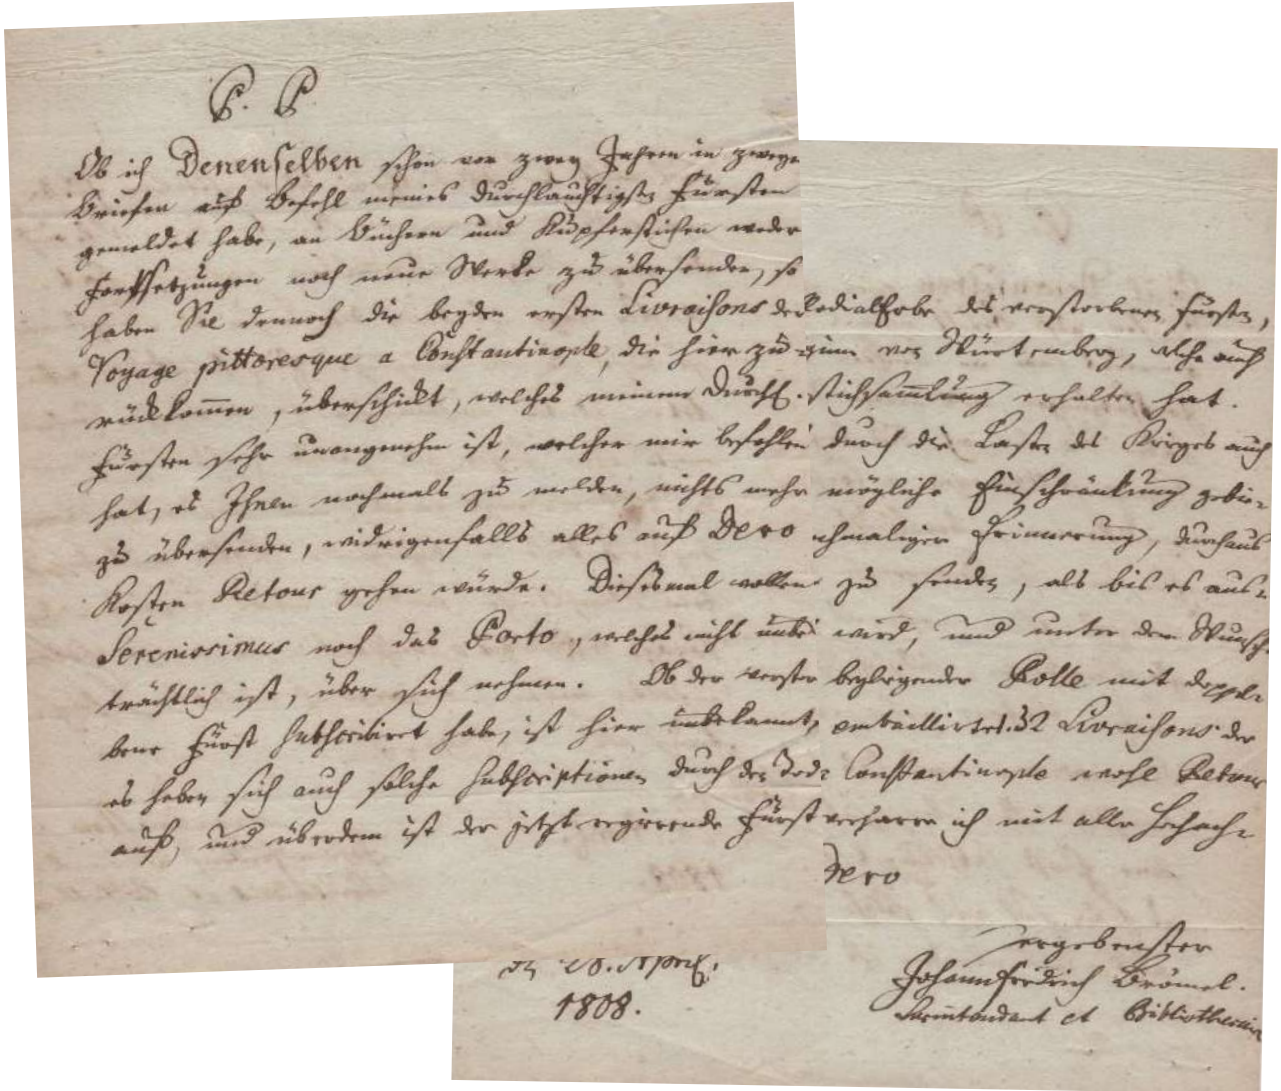 P. P.
Ob ich Denenselben schon vor zwey Jahren in zweye
Briefen auf Befehl meines Durchlauchtigsten Fürsten
gemeldet habe, an Büchern und Kupferstichen weder
Fortsetzungen noch neue Werke zu übersenden, so
haben Sie dennoch die beyden ersten Livraisons de
Voyage pittoresque a Constantinople, die hier zu
rückkommen, überschickt, welches meinem Durchl.
Fürsten sehr unangenehm ist, welcher mir befohlen
hat, es Ihnen nochmals zu melden, nichts mehr
zu übersenden, widrigenfalls alles auf Dero
Kosten Retour gehen würde. Diesesmal wollen
Serenissimus noch das Porto, welches nicht unbe
trächtlich ist, über sich nehmen. Ob der verstor
bene Fürst subscribiret habe, ist hier unbekannt,
es heben sich auch solche Subscriptionen durch den Tod
auf, und überdem ist der jetzt regierende Fürst
des verstorbenen Fürsten,
von Würtemberg, auch
stichsammlung erhalten hat.
durch die Lasten des Krieges auch
mögliche Einschränkung gebie-
chmaliger Erinnerung, durchaus
zu senden, als bis es aus-
wird, und unter dem Wunsch
beyliegender Rolle mit
emballirter 2 Livraisons der
Constantinople wohl Retour
verharre ich mit aller Hochach-
Dero
ergebenster
Johann Friedrich Brömel.
et Bibliothecair
28. April.
1808.